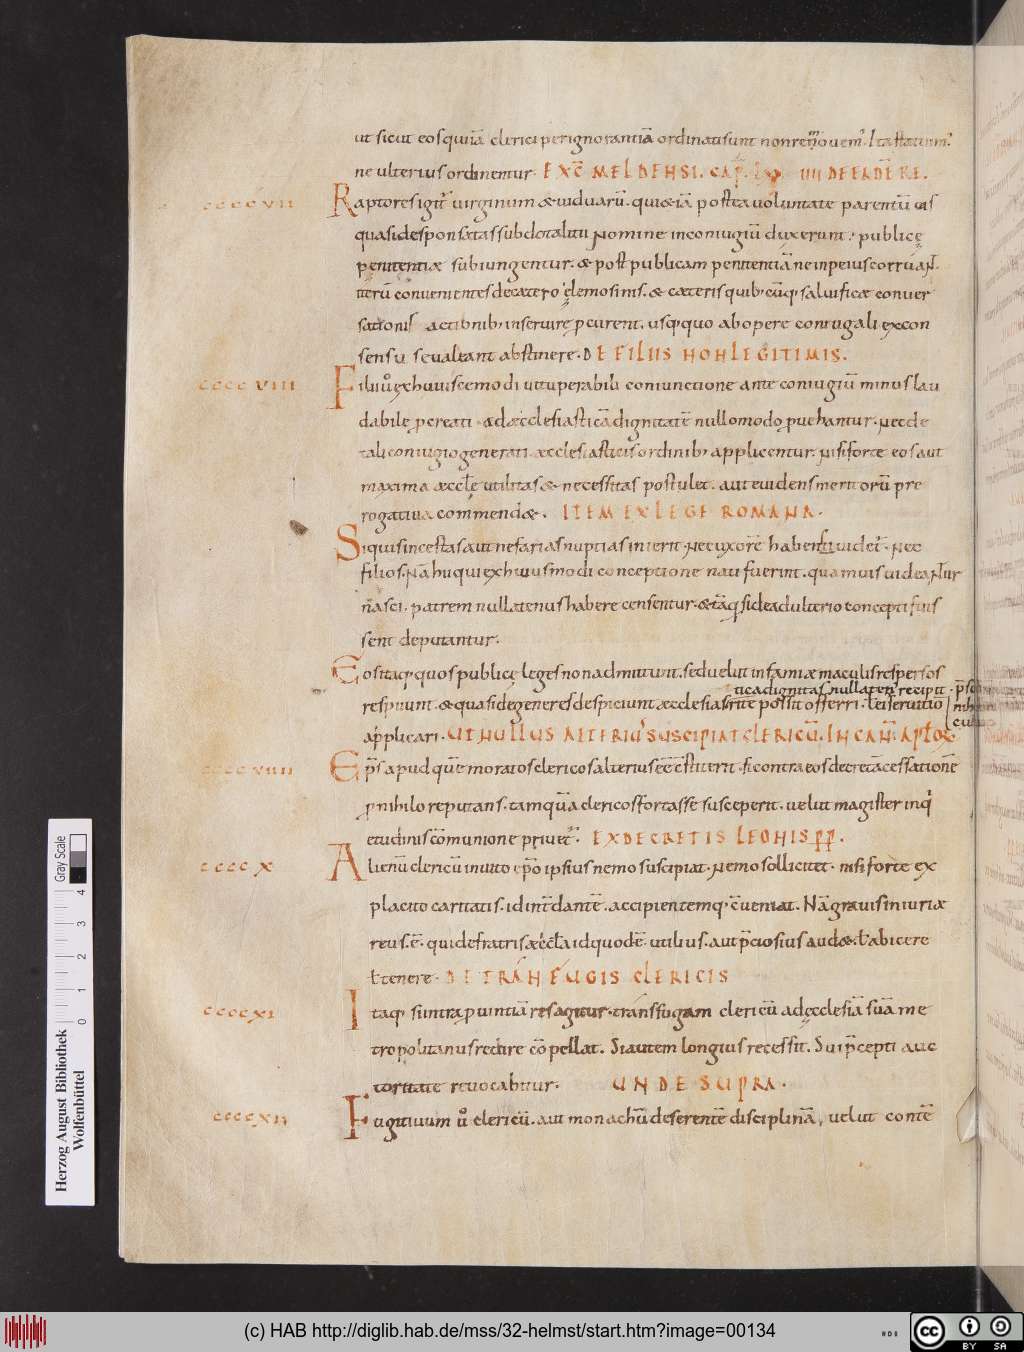 ut sicut eos quiā clerici per ignorantiā ordinati sunt non removem̄. Ita statuim̄.
ne ulterius ordinentur. EXC̄ MELDENSI. CAP̄. IIII DE EADE RE.
ccccvii Raptores igit̄ virginum & viduarū. qui etiā postea voluntate parentū eis
quasi desponsatas sub dotalitii nomine in coniugiū duxerunt; publicę
penitentiæ subiungentur. & post publicam penitentiā ne in peius corruant.
iterū convenientes de cætero elemosinis. & cæteris quib; cūq; salvificæ conver
sationis actionib; inservire pcurent. usq; quo ab opere coniugali ex con
sensu se valeant abstinere. DE FILIIS NON LEGITIMIS.
ccccviii Filii ů ex huiuscemodi vituperabili coniunctione ante coniugiū minus lau
dabile pcreati. ad æcclesiasticā dignitatē nullomodo pvehantur. Nec de
tali coniugio generati. æcclesiasticis ordinib; applicentur. Nisi forte eos aut
maxima æccłe utilitas & necessitas postulet. aut evidens meritorū pre
rogativa commend&. ITEM EX LEGE ROMANA.
Siqui sincestas aut nefarias nuptias inierit. Nec uxorē habens videt̄. Nec
filios. Nā hi qui ex huiusmodi conceptione nati fuerint. quamvis videantur
nasci. patrem nullatenus habere censentur. & tāq si de adulterio concepti fuis
sent deputantur.
Eos itaq; quos publicę leges non admittunt. sed velut infamiæ maculis respersos
tica dignitas nullaten; recipit.
respuunt. & quasi degeneres despiciunt æcclesias rite possit offerri. ł ei servitio
applicari. UT NULLUS ALTERIUS SUSCIPIAT CLERICŪ. IN CAN̄. APŁOR
ccccviiii Ep̄s apud quē moratos clericos alterius eē cstiterit. si contra eos decretā cessationē
p nihilo reputans. tamquā clericos fortassē susceperit. velut magister inq
etudinis cōmunione privet̄. EX DECRETIS LEONIS PP̄.
ccccx Alienū clericū invito ep̄o ipsius nemo suscipiat. Nemo sollicitet. nisi forte ex
placito caritatis. id int̄ dantē. accipientemq; cveniat. Nā gravis iniuriæ
reus. ē. qui de fratris æccła id quodē. utilius. aut pciosius aud&. ł abicere
ł tenere. DE TRANSFUGIS CLERICIS
ccccxi Itaq; si intra pvintiā res agitur. transfugam clericū ad æcclesiā suā me
tropolitanus redire cōpellat. Si autem longius recessit. Sui pcepti auc
toritate revocabitur. UNDE SUPRA.
ccccxii Fugitivum ů clericū. aut monachū deserentē disciplinā, velut contē
Gray Scale
0 1 2 3 4
Herzog August Bibliothek
Wolfenbüttel
(c) HAB http://diglib.hab.de/mss/32-helmst/start.htm?image=00134
cc BY SA